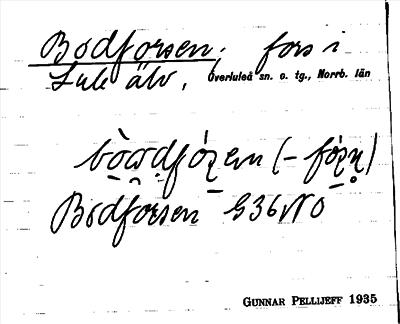 Bodforsen, fors i
Lule älv, Överluleå sn. o. tg., Norrb. län
Bodforsen G36NO
GUNNAR PELLIJEFF 1935